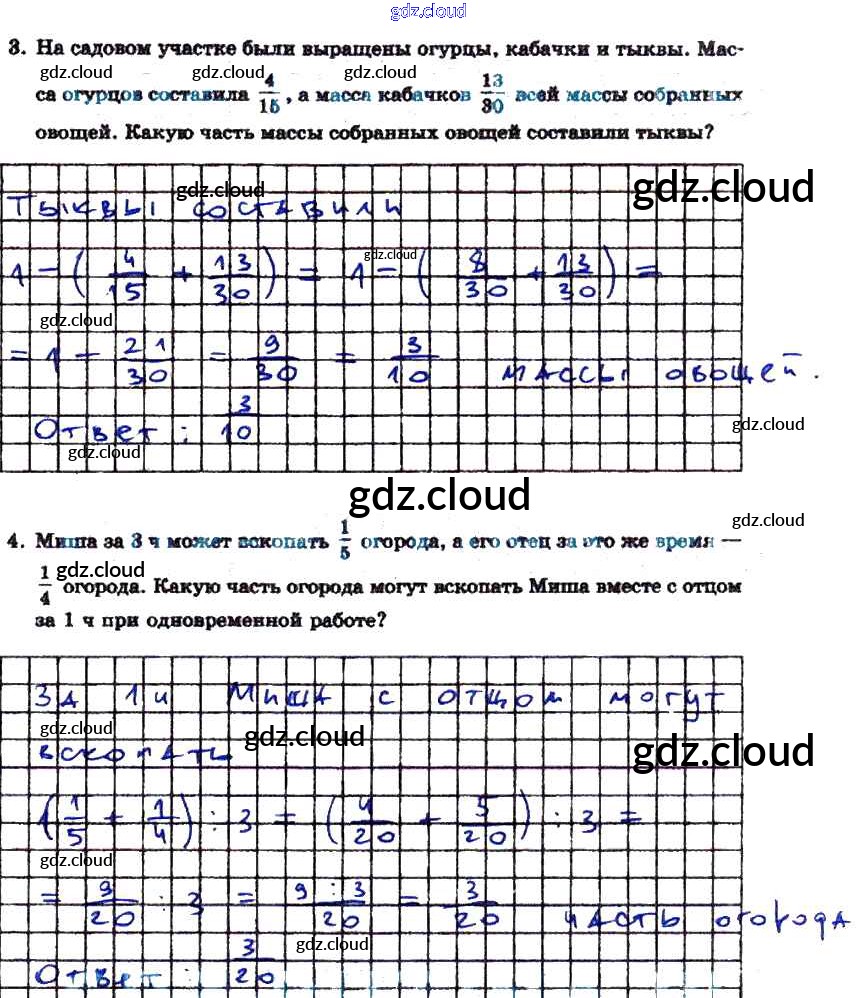 gdz.cloud
3. На садовом участке были выращены огурцы, кабачки и тыквы. Мас-
gdz.cloud gdz.cloud gdz.cloud
са огурцов составила 4/15, а масса кабачков 13/30 всей массы собранных
овощей. Какую часть массы собранных овощей составили тыквы?
gdz.cloud gdz.cloud
Тыквы составили
gdz.cloud
1 - (4/15 + 13/30) = 1 - (8/30 + 13/30) =
gdz.cloud
= 1 - 21/30 = 9/30 = 3/10 массы овощей.
Ответ: 3/10
gdz.cloud
gdz.cloud
gdz.cloud
gdz.cloud
4. Миша за 3 ч может вскопать 1/5 огорода, а его отец за это же время —
gdz.cloud
1/4 огорода. Какую часть огорода могут вскопать Миша вместе с отцом
за 1 ч при одновременной работе?
За 1ч Миша с отцом могут
gdz.cloud gdz.cloud gdz.cloud
вскопать
(1/5 + 1/4) : 3 = (4/20 + 5/20) : 3 =
gdz.cloud
= 9/20 : 3 = 9 : 3/20 = 3/20 часть огорода
gdz.cloud
Ответ: 3/20